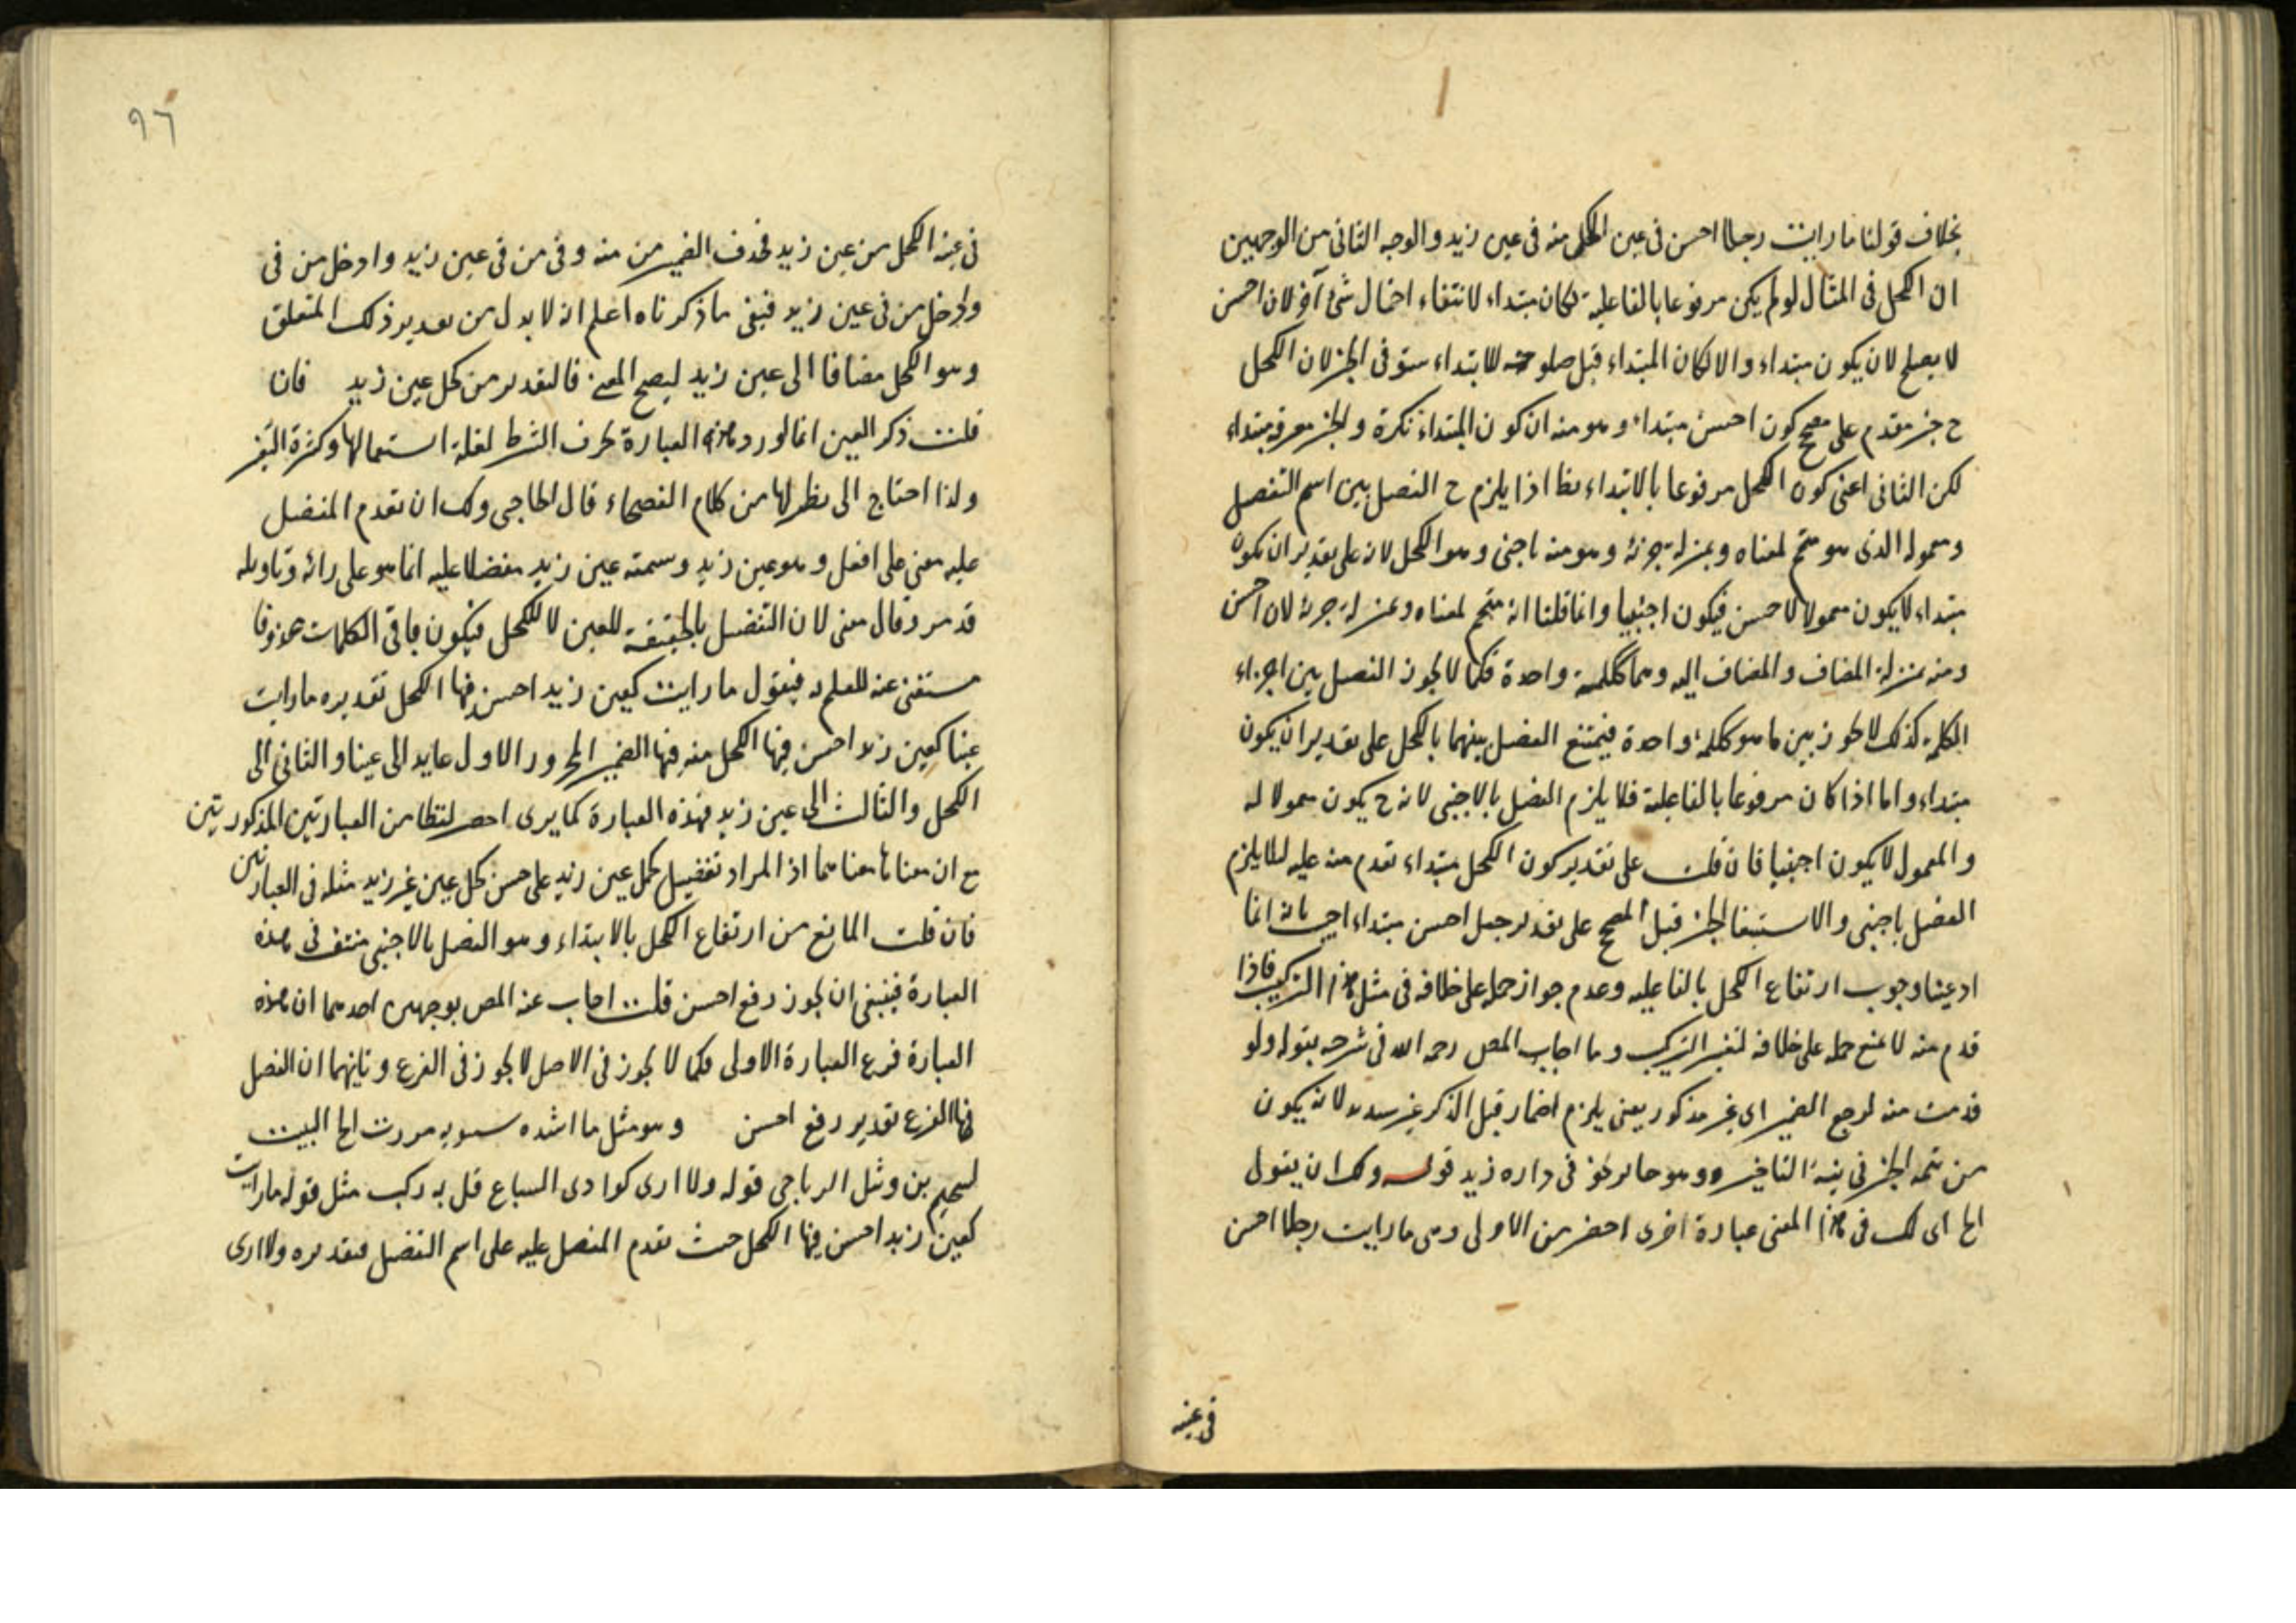 بخلاف قولنا ما رايت رجلا احسن فى عين الكحل منه فى عين زيد والوجه الثانى من الوجهين
ان الكحل فى المثال لو لم يكن مرفوعا بالفاعلية لكان مبتداء لانتفاء احتمال شئ آخر لان احسن
لا يصلح لان يكون مبتداء والا لكان المبتداء قبل صلوحه للابتداء ستوفى الخبر لان الكحل
ح خبر مقدم على مصحح كون احسن مبتداء وهو منه ان كون المبتداء نكرة والخبر معرفه مبتداء
لكن الثانى اعنى كون الكحل مرفوعا بالابتداء بط اذا يلزم ح الفصل بين اسم التفصل
ومعموله الذى هو متمم لمعناه وبمنزلة جزئه وهو منه باجنى وهو الكحل لانه على تقدير ان يكون
مبتداء لا يكون معمولا لاحسن فيكون اجنبيا وانما قلنا انه متمم لمعناه وبمنزلة جزئه لان احسن
ومنه بمنزلة المضاف والمضاف اليه وهما ككلمة واحدة فكما لا يجوز الفصل بين اجزاء
الكلمة كذلك لا يجوز بين ما هو ككلمة واحدة فيمتنع الفصل بينهما بالكحل على تقدير ان يكون
مبتداء واما اذا كان مرفوعا بالفاعلية فلا يلزم الفصل بالاجنبى لانه ح يكون معمولا له
والمعمول لا يكون اجنبيا فان قلت على تقدير كون الكحل مبتداء تقدم منه عليه لئلا يلزم
الفصل باجنبى والاستيفا الخبر قبل المصحح على تقدير جعل احسن مبتداء اجيب بانه انما
ادعينا وجوب ارتفاع الكحل بالفاعليه وعدم جواز حمله على خلافه فى مثل هذا التركيب فاذا
قدم منه لا يمنع حمله على خلافه لتغير التركيب وما اجاب المص رحمه الله فى شرحه بقوله ولو
قدمت منه لرجع الضمير اى غير مذكور يعنى يلزم اضمار قبل الذكر غير سديد لانه يكون
من تتمه الخبر فى نية التاخير وهو جائز نحو فى داره زيد قوله ولك ان يقول
الخ اى لك فى هذا المعنى عبارة اخرى اخصر من الاولى وهى ما رايت رجلا احسن
فى عينه
٩٦
فى عينه الكحل من عين زيد فحذف الضمير من منه وفى من فى عين زيد وادخل من فى
وادخل من فى عين زيد فبقى ما ذكرناه اعلم انه لا بد ل من تقدير ذلك المتعلق
وهو الكحل مضافا الى عين زيد ليصح المعنى فالتقدير من كحل عين زيد فان
قلت ذكر العين انما لورد هذه العبارة بحرف الشرط لقلة استعمالها وكثرة التغير
ولذا احتاج الى نظر لها من كلام الفصحاء قال الحاجبى ولك ان تقدم المفضل
عليه معنى على افعل وهو عين زيد وسمته عين زيد مفضلا عليه انما هو على رائه وتاويله
قد مر وقال معنى لان التفضيل بالحقيقة للعين لا للكحل فيكون باقى الكلمات محذوفا
مستغنى عنه للعلم به فيقول ما رايت كعين زيد احسن فيها الكحل تقديره ما رايت
عينا كعين زيد احسن فيها الكحل منه فيها الضمير المجرور الاول عايد الى عينا والثانى الى
الكحل والثالث الى عين زيد فهذه العبارة كما يرى اخصر لفظا من العبارتين المذكورتين
مع ان معناها معناهما اذ المراد تفضيل كحل عين زيد على حسن كحل عين غير زيد مثله فى العبارتين
فان قلت المانع من ارتفاع الكحل بالابتداء وهو الفصل بالاجنبى منتف فى هذه
العبارة فينبغى ان يجوز رفع احسن قلت اجاب عنه المص بوجهين احدهما ان هذه
العبارة فرع العبارة الاولى فكما لا يجوز فى الاصل لا يجوز فى الفرع وثانيهما ان الفصل
فى هذا الفرع تقدير رفع احسن وهو مثل ما انشده سيبويه مررت الخ البيت
لسحيم بن وثيل الرياحى قوله ولا ارى كوادى السباع قل به ركب مثل قوله ما رايت
كعين زيد احسن فيها الكحل حيث تقدم المفضل عليه على اسم التفضل فتقديره ولا ارى